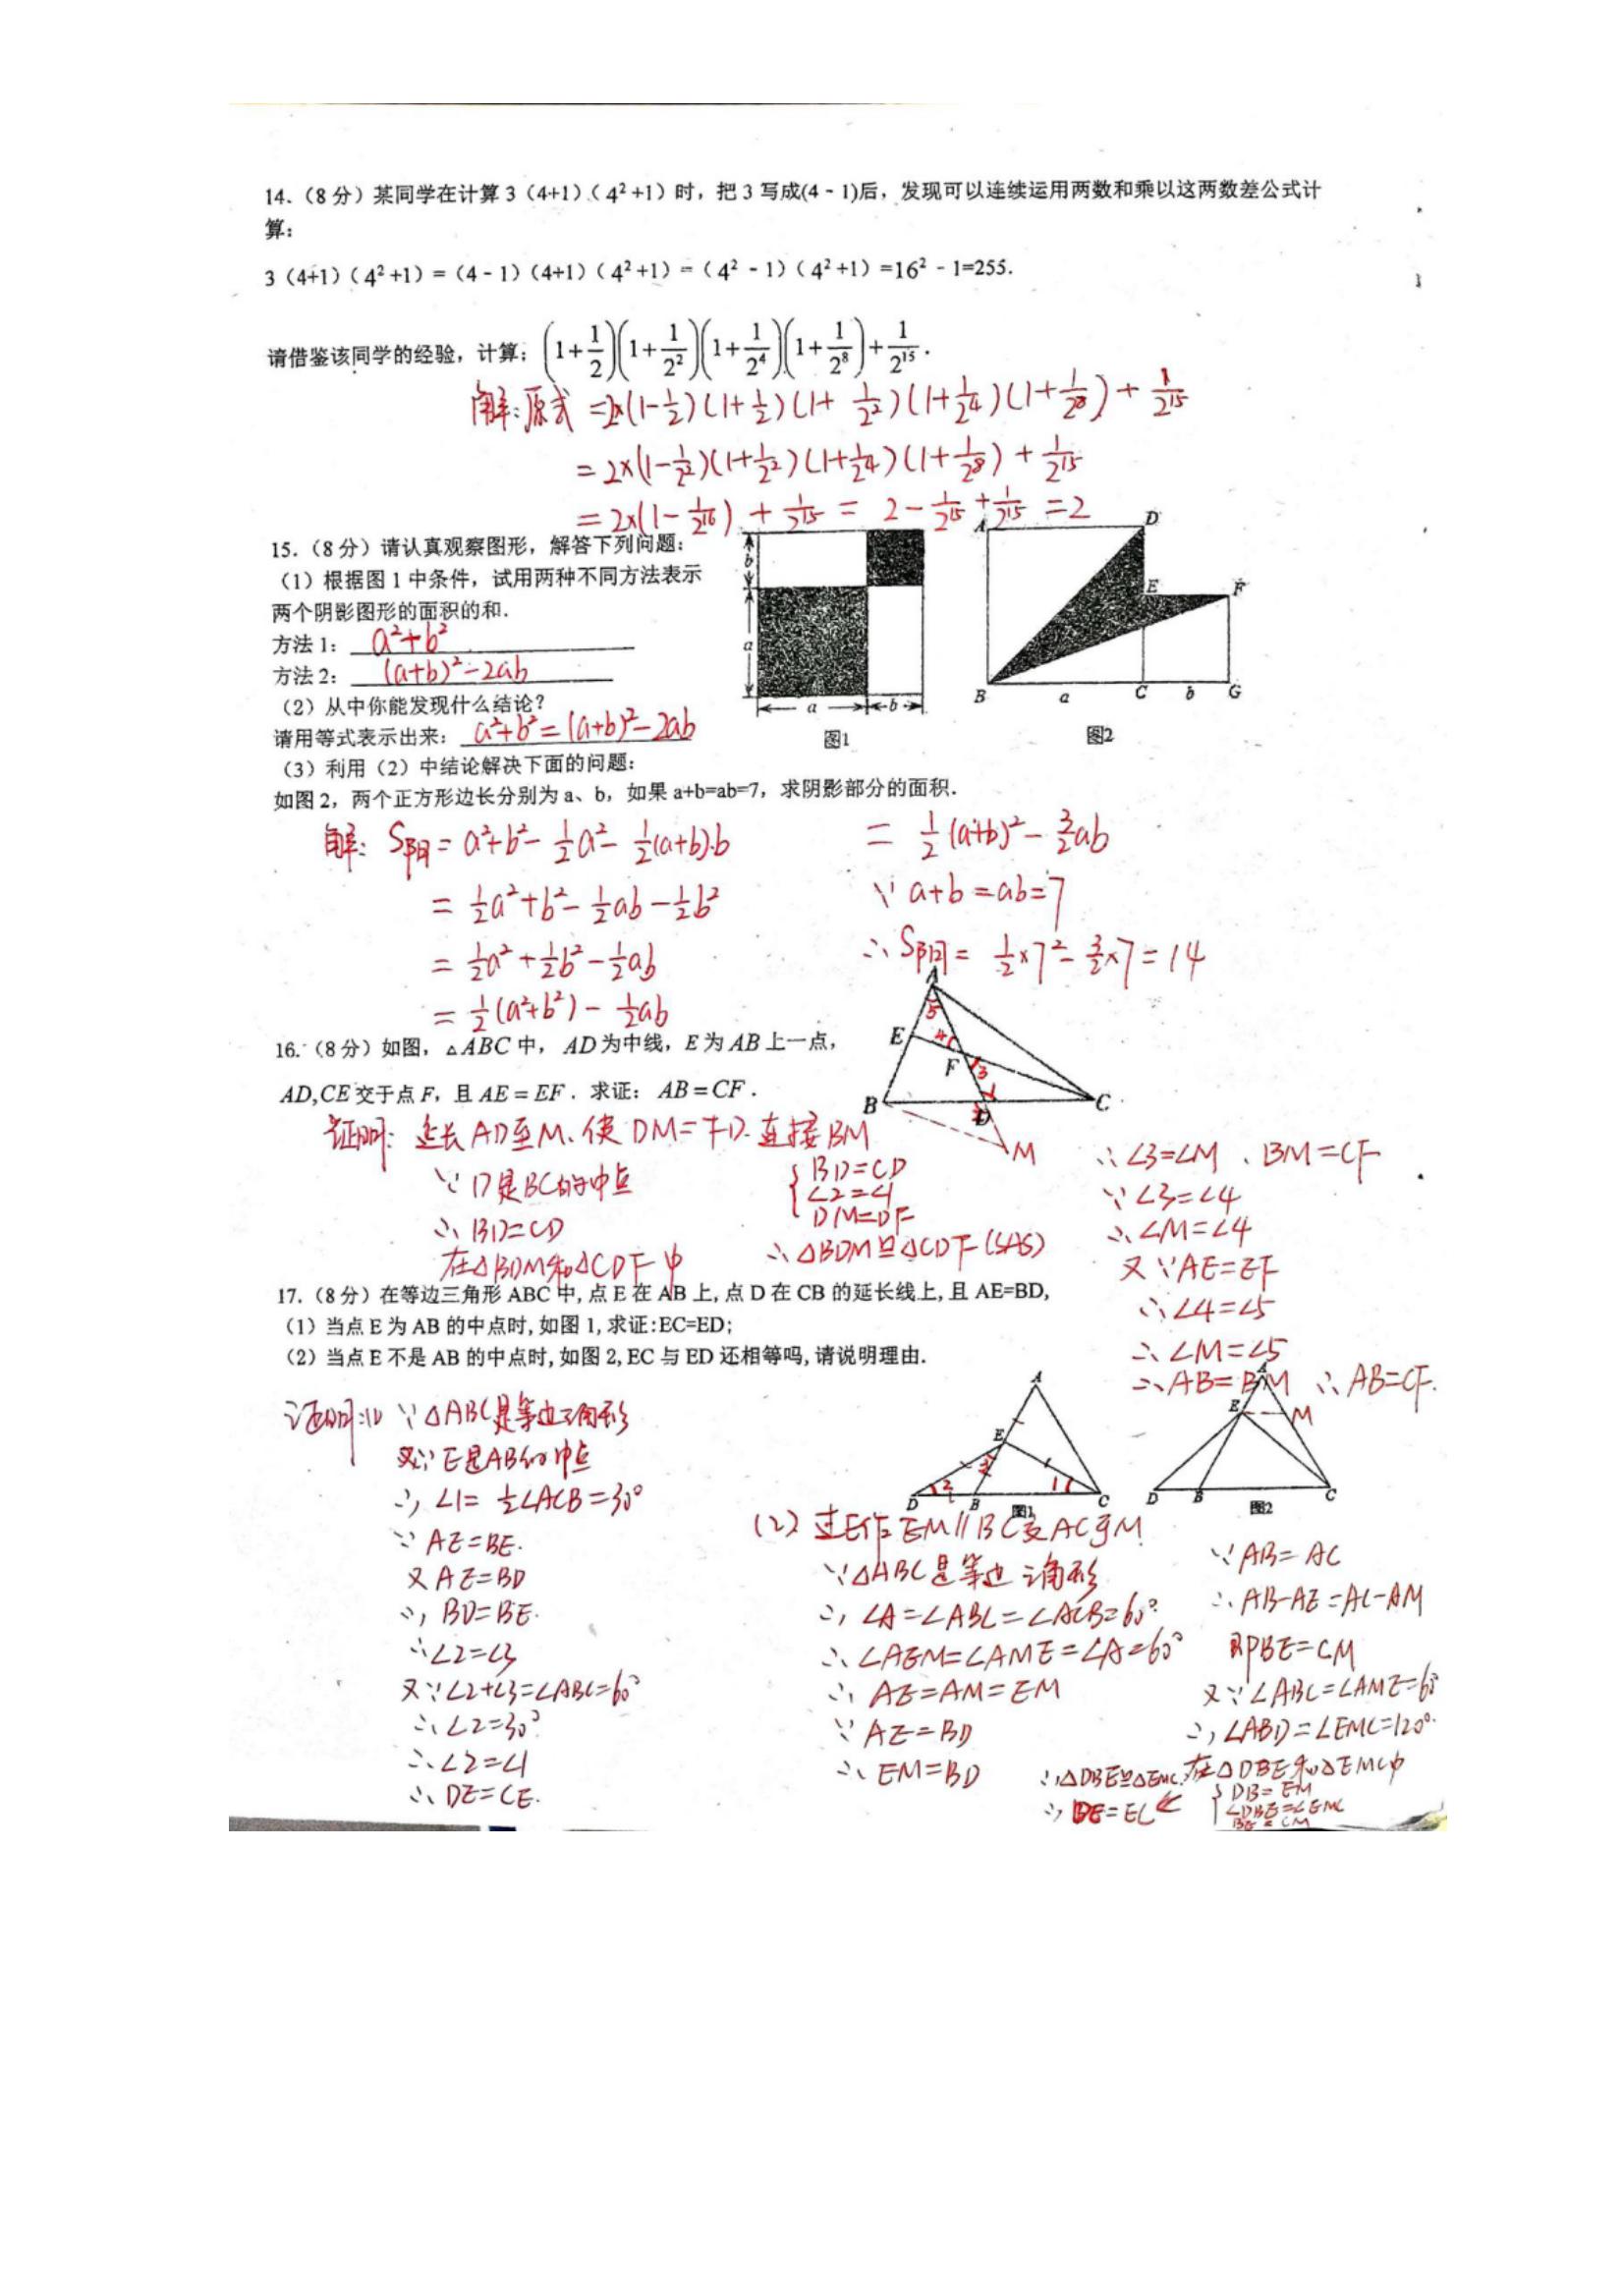 14.（8 分）某同学在计算 3（4+1）（4²+1）时，把 3 写成(4 - 1)后，发现可以连续运用两数和乘以这两数差公式计
算：
3（4+1）（4²+1）=（4 - 1）（4+1）（4²+1）=（4² - 1）（4²+1）=16² - 1=255.
请借鉴该同学的经验，计算：(1+1/2)(1+1/2²)(1+1/2⁴)(1+1/2⁸)+1/2¹⁵.
解：原式 =2×(1-1/2)(1+1/2)(1+1/2²)(1+1/2⁴)(1+1/2⁸)+1/2¹⁵
=2×(1-1/2²)(1+1/2²)(1+1/2⁴)(1+1/2⁸)+1/2¹⁵
=2×(1-1/2¹⁶)+1/2¹⁵=2-1/2¹⁵+1/2¹⁵=2
15.（8 分）请认真观察图形，解答下列问题：
（1）根据图 1 中条件，试用两种不同方法表示
两个阴影图形的面积的和.
方法 1： a²+b²
方法 2： (a+b)²-2ab
（2）从中你能发现什么结论？
请用等式表示出来： a²+b²=(a+b)²-2ab
b
a
a b
图1
A D
E F
B a C b G
图2
（3）利用（2）中结论解决下面的问题：
如图 2，两个正方形边长分别为 a、b，如果 a+b=ab=7，求阴影部分的面积.
解：S阴=a²+b²-1/2a²-1/2(a+b)·b
=1/2a²+b²-1/2ab-1/2b²
=1/2a²+1/2b²-1/2ab
=1/2(a²+b²)-1/2ab
=1/2(a+b)²-3/2ab
∵a+b=ab=7
∴S阴=1/2×7²-3/2×7=14
16.（8 分）如图，△ABC 中， AD 为中线，E 为 AB 上一点，
AD,CE 交于点 F，且 AE = EF . 求证： AB = CF .
A
5
E 4
F 3
B 2 D 1 C
M
证明：延长AD至M、使DM=FD.连接BM
∵D是BC的中点
∴BD=CD
在△BDM和△CDF中
{BD=CD
∠2=∠1
DM=DF
∴△BDM≌△CDF(SAS)
∴∠3=∠M、BM=CF
∵∠3=∠4
∴∠M=∠4
又∵AE=EF
∴∠4=∠5
∴∠M=∠5
∴AB=BM ∴AB=CF.
17.（8 分）在等边三角形 ABC 中,点 E 在 AB 上,点 D 在 CB 的延长线上,且 AE=BD,
（1）当点 E 为 AB 的中点时,如图 1,求证:EC=ED;
（2）当点 E 不是 AB 的中点时,如图 2,EC 与 ED 还相等吗,请说明理由.
A
E
3
2 1
D B C
图1
A
E M
D B C
图2
证明:(1) ∵△ABC是等边三角形
又∵E是AB的中点
∴∠1=1/2∠ACB=30°
∵AE=BE.
又AE=BD
∴BD=BE.
∴∠2=∠3
又∵∠2+∠3=∠ABC=60°
∴∠2=30°
∴∠2=∠1
∴DE=CE.
(2)过E作EM∥BC交AC于M
∵△ABC是等边三角形
∴∠A=∠ABC=∠ACB=60°
∴∠AEM=∠AME=∠A=60°
∴AE=AM=EM
∵AE=BD
∴EM=BD
∵AB=AC
∴AB-AE=AC-AM
即BE=CM
又∵∠ABC=∠AME=60°
∴∠ABD=∠EMC=120°
在△DBE和△EMC中
{DB=EM
∠DBE=∠EMC
BE=CM
∴△DBE≌△EMC.
∴DE=EC